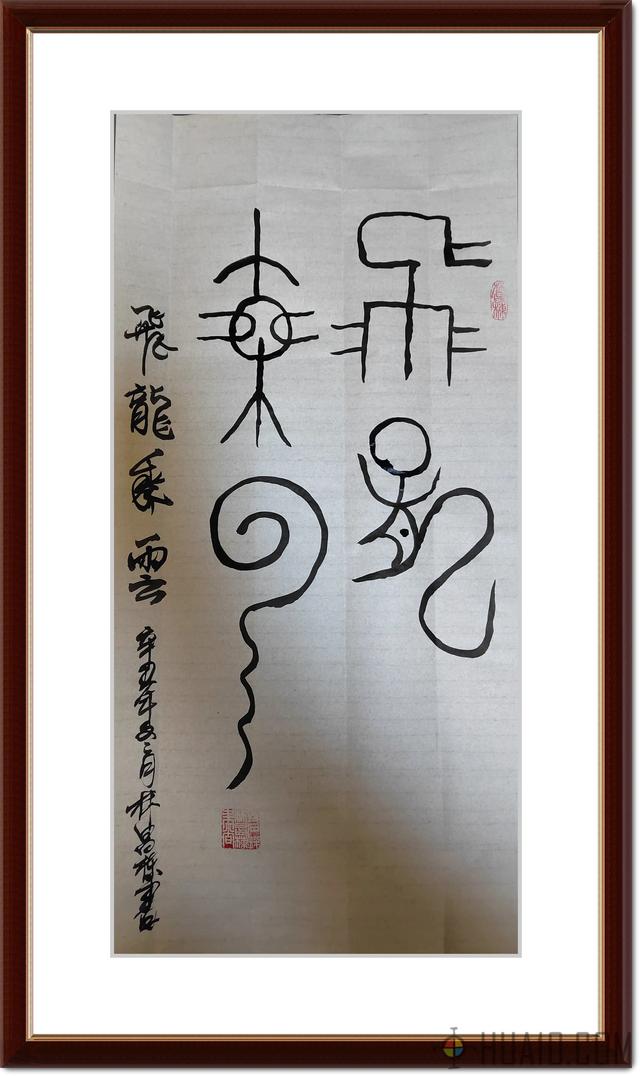 飛龍乘雲
飛龍乘雲
辛丑年 月林 書
HUAID.COM